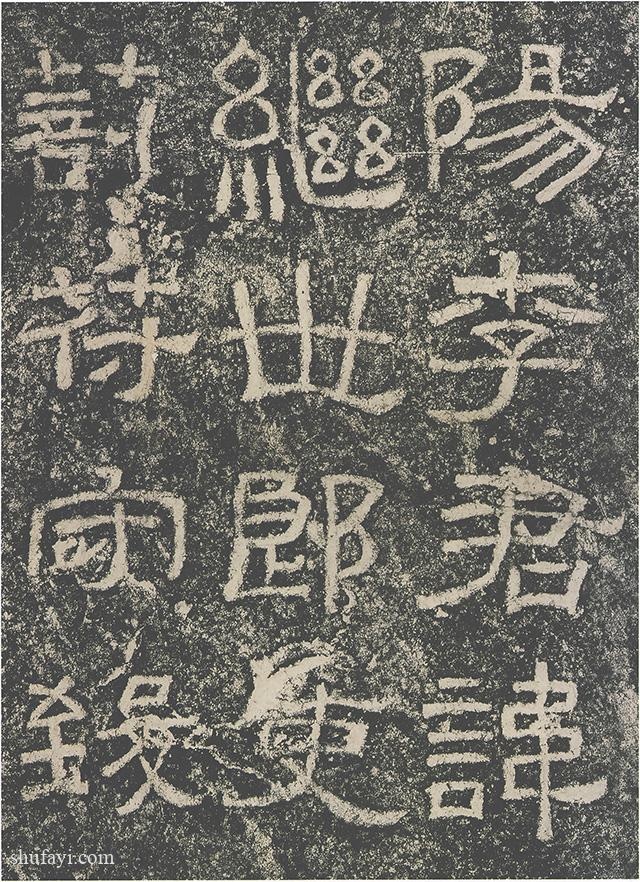 陽李君諱
繼世郎吏
剖符守致
shufayi.com